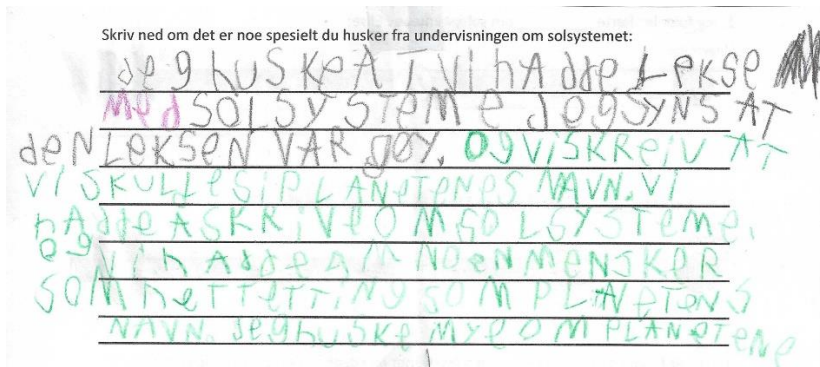 Skriv ned om det er noe spesielt du husker fra undervisningen om solsystemet:
jeg huSKe AT Vi hAdde LeKSe
Med SOLSYSTEME JegSYNS AT
deN LeKSeN VAR gøY. Og Vi SKReiV AT
Vi SKULLe Si PLANeTeNeS NAVN. Vi
hAdde ASKRiVe OM SOLSYSTEMe.
og Vi hAdde OM NOeN MeNSKeR
SOM heTTeTTiNg SOM PLANeTeNS
NAVN. JeghuSKe MYe OM PLANeTeNe